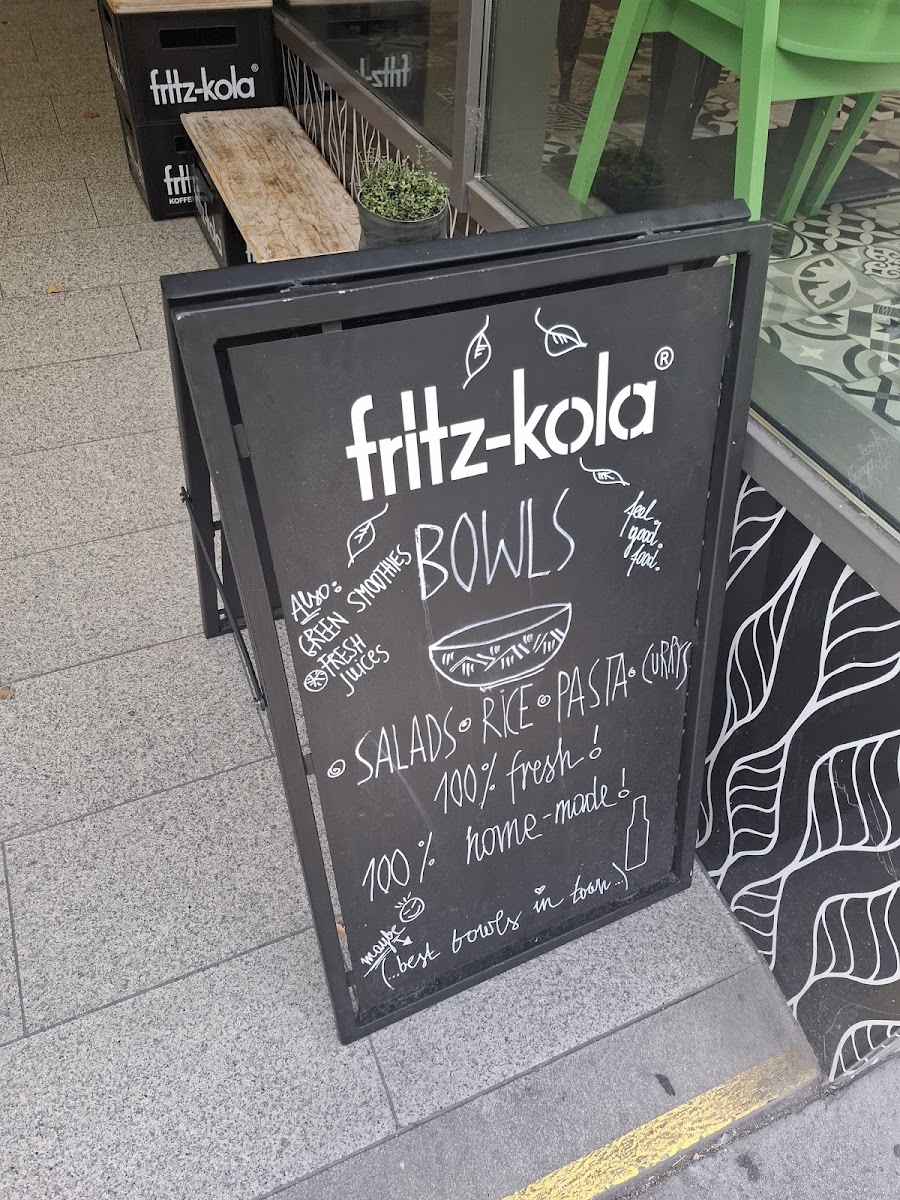 fritz-kola®
fritz-kola
fritz-kola®
BOWLS
feel.
good.
food.
Also:
GREEN SMOOTHIES
FRESH
juices
• SALADS • RICE • PASTA • CURRYS
100% fresh!
100% home-made!
maybe
(...best bowls in town..)